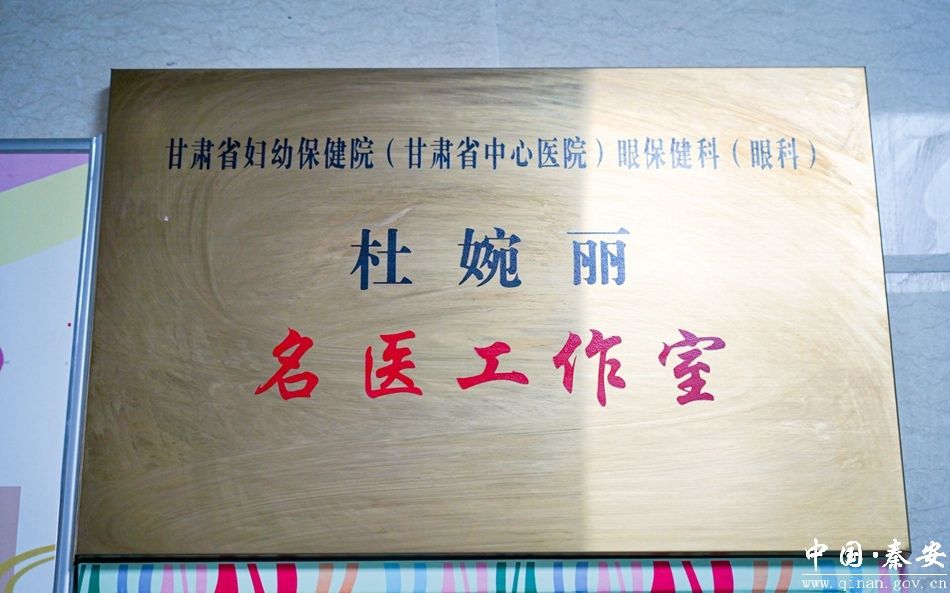 甘肃省妇幼保健院（甘肃省中心医院）眼保健科（眼科）
杜婉丽
名医工作室
中国·秦安
www.qinan.gov.cn